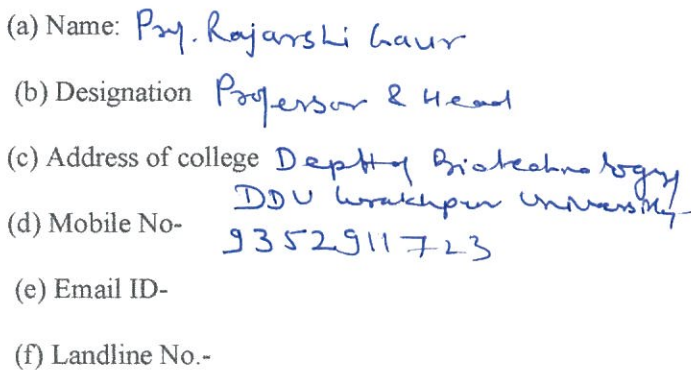 (a) Name: Prof. Rajarshi Gaur
(b) Designation Professor & Head
(c) Address of college Deptt of Biotechnology
DDU Gorakhpur University
(d) Mobile No- 9352911723
(e) Email ID-
(f) Landline No.-